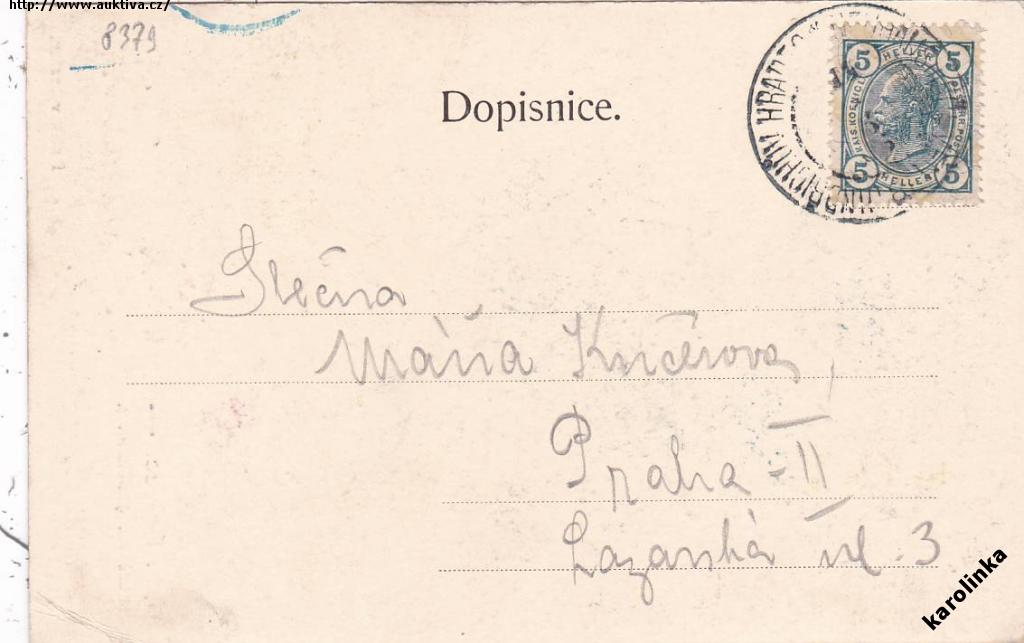 http://www.auktiva.cz/
8379
Dopisnice.
5 HELLER 5
KAIS.KOENIGL. OESTERR.POST
5 HELLER 5
JINDŘICHŮV HRADEC
Slečna
Máňa Kučerova,
Praha-II
Lazarská ul. 3
karolinka